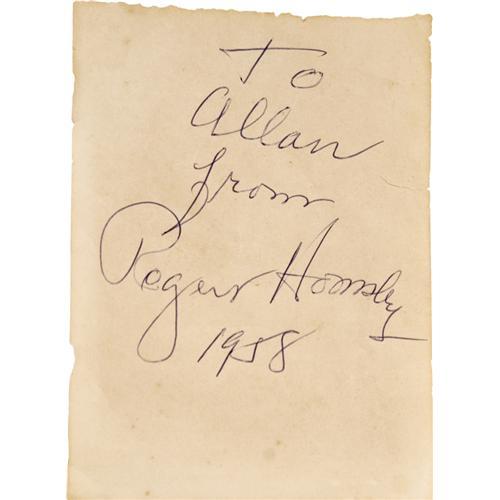 To
Allan
from
Rogers Hornsby
1958